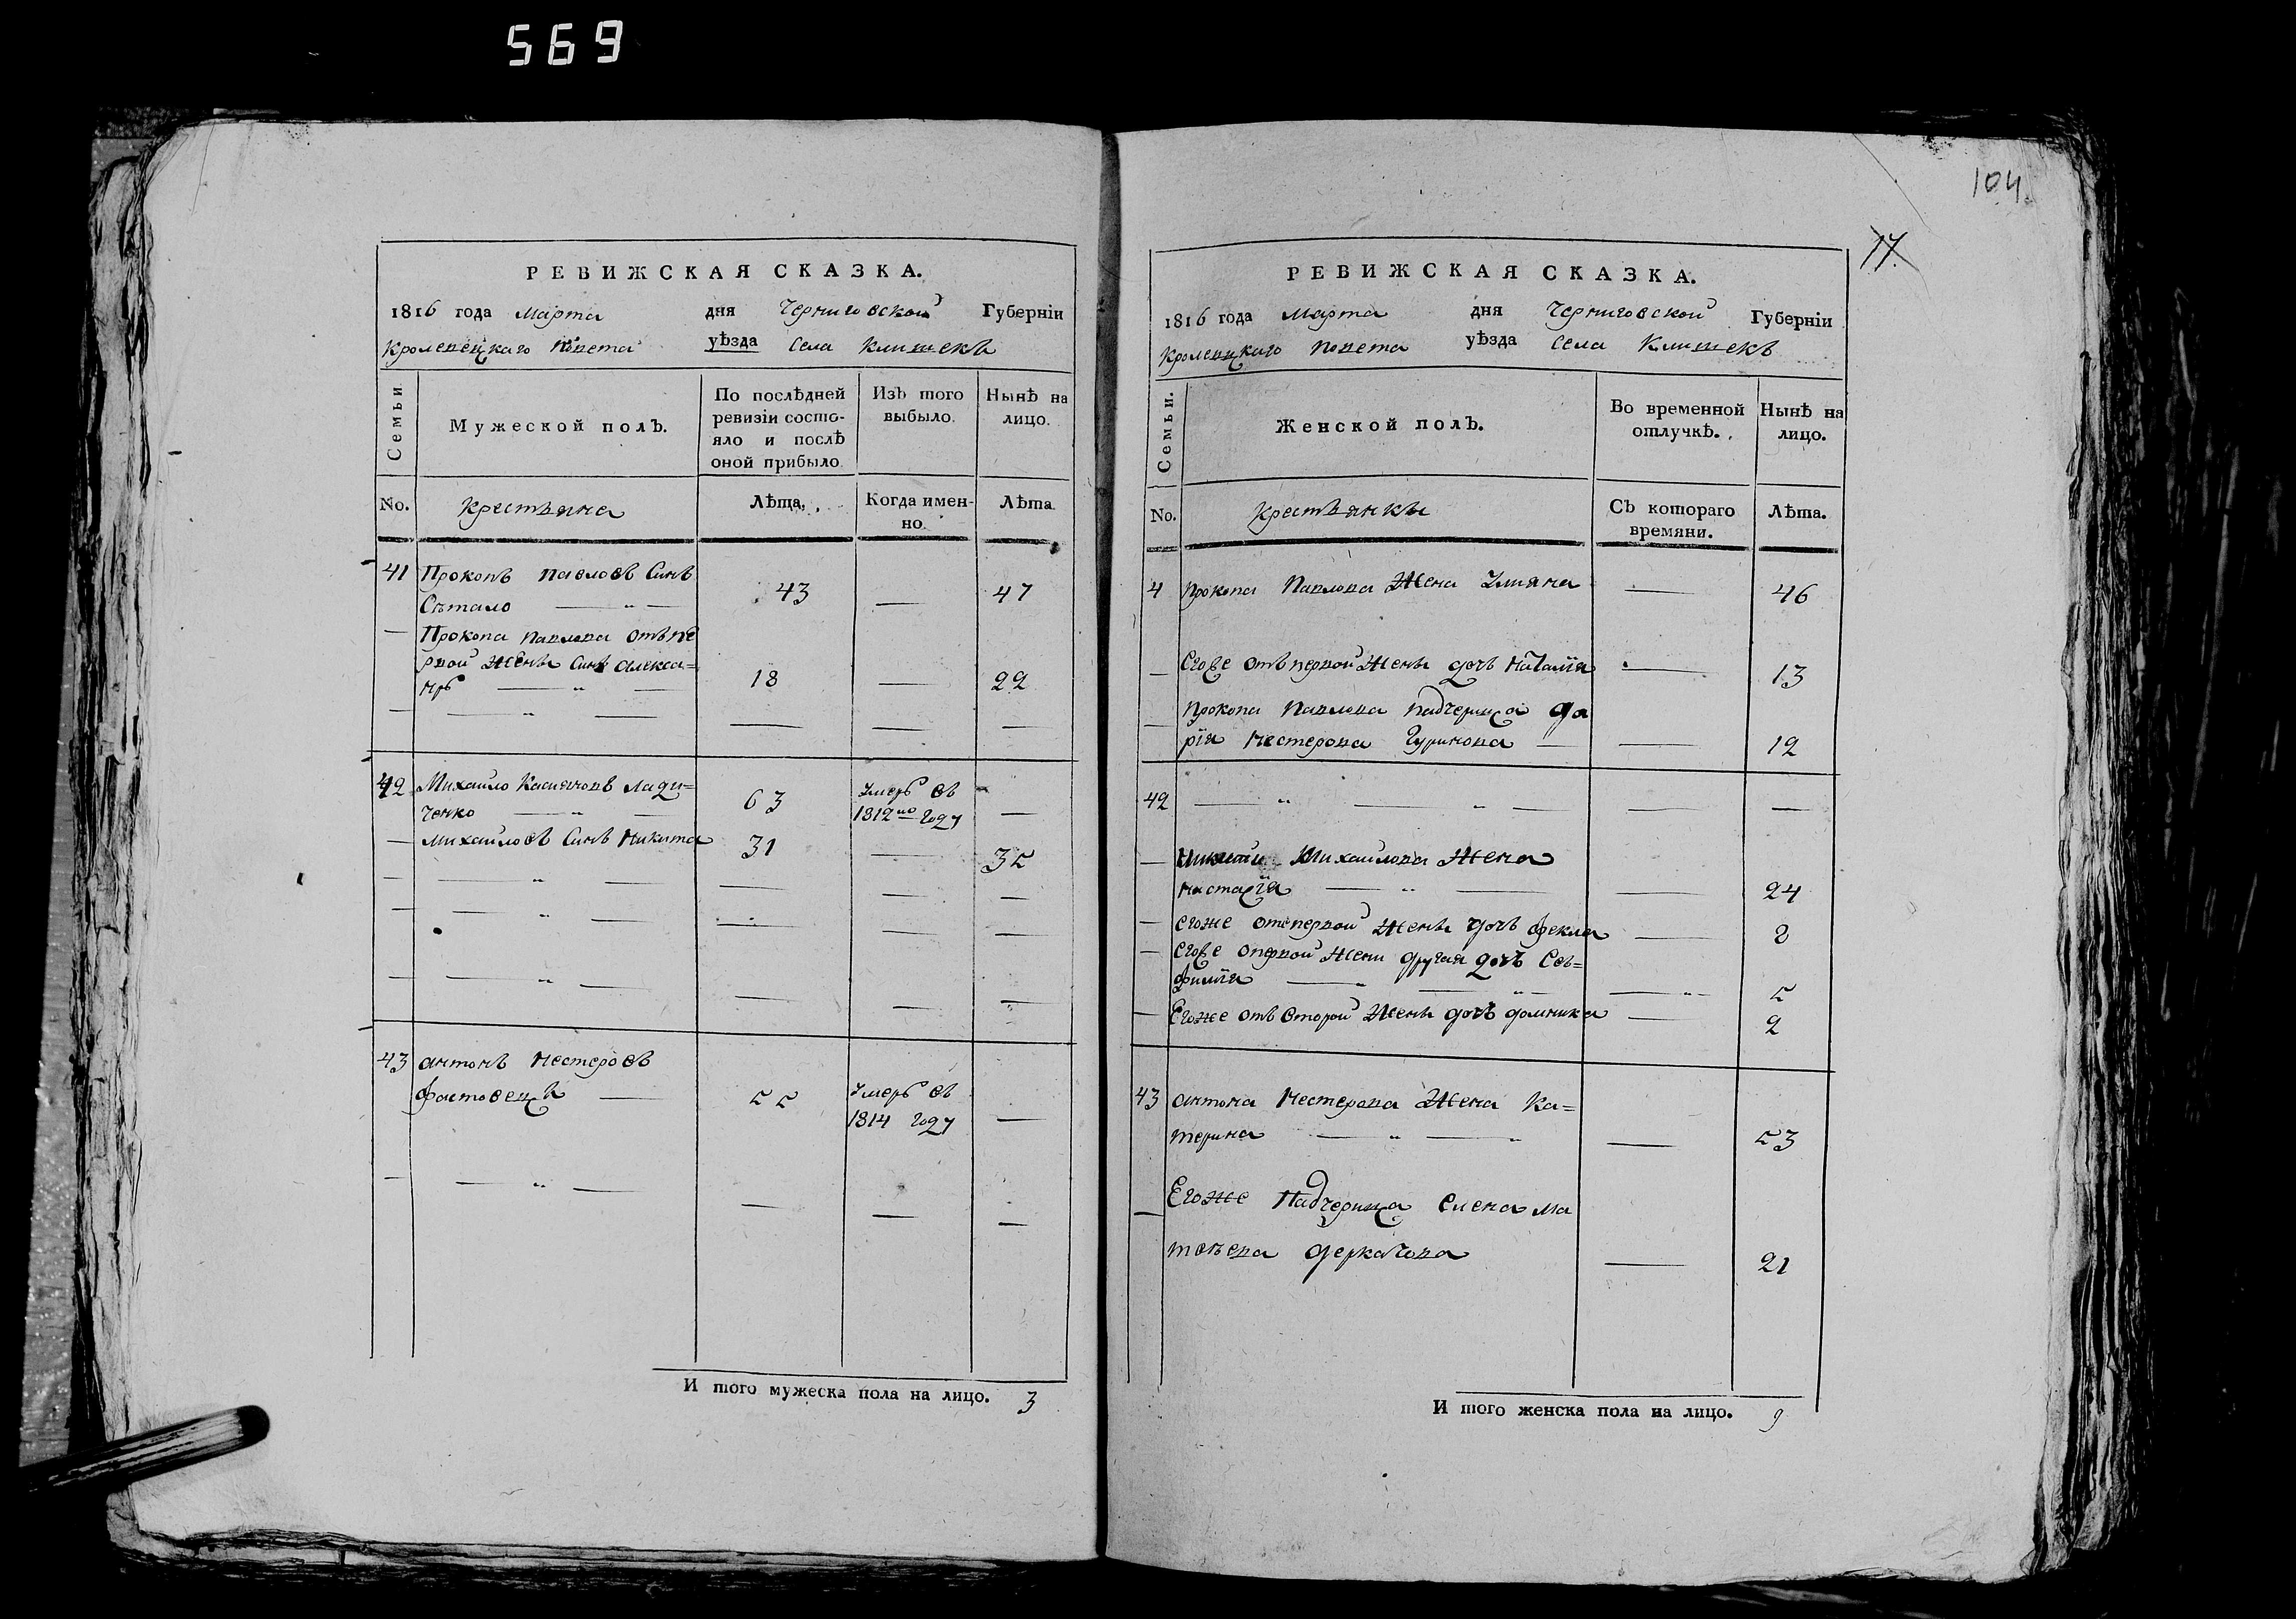 569
РЕВИЖСКАЯ СКАЗКА.
1816 года Марта дня Черниговской Губерніи
Кролевецкаго Повета уѣзда Села Клишекъ
Семьи
Мужеской полъ.
По послѣдней
ревизіи состо-
яло и послѣ
оной прибыло
Изъ того
выбыло.
Нынѣ на
лицо.
No.
Крестьяна
Лѣта,
Когда имен-
но.
Лѣта
41 Прокопъ Павловъ Синъ
43 47
Прокопа Павлова отъ пе
рвой жены Синъ Алекса=
ндръ 18 22
42 Михайло Касияновъ Лади=
ченко 63 Умеръ въ
1812го году
Михайловъ Синъ Никита 31 35
43 Антонъ Нестеровъ
Фастовецъ 55 Умеръ въ
1814 году
И того мужеска пола на лицо. 3
104.
17.
РЕВИЖСКАЯ СКАЗКА.
1816 года Марта дня Черниговской Губерніи
Кролевецкаго Повета уѣзда Села Клишекъ
Семьи.
Женской полъ.
Во временной
отлучкѣ.
Нынѣ на
лицо.
No.
Крестьянки
Съ котораго
времяни.
Лѣта.
4 Прокопа Павлова Жена Улияна 46
Егоже отъ первой Жены дочь Наталія 13
Прокопа Павлова Падчерица Да
рія Нестерова Гуринова 12
42
Никити Михайлова Жена
Настасія 24
Егоже отпервой Жены дочь Фекла 8
Егоже опервой Жени другая дочь Ев=
фимія 5
Егоже отъ второй Жены дочь Домникия 2
43 Антона Нестерова Жена Ка=
терина 53
Егоже Падчерица Елена Ма
твѣева Деркачова 21
И того женска пола на лицо. 9